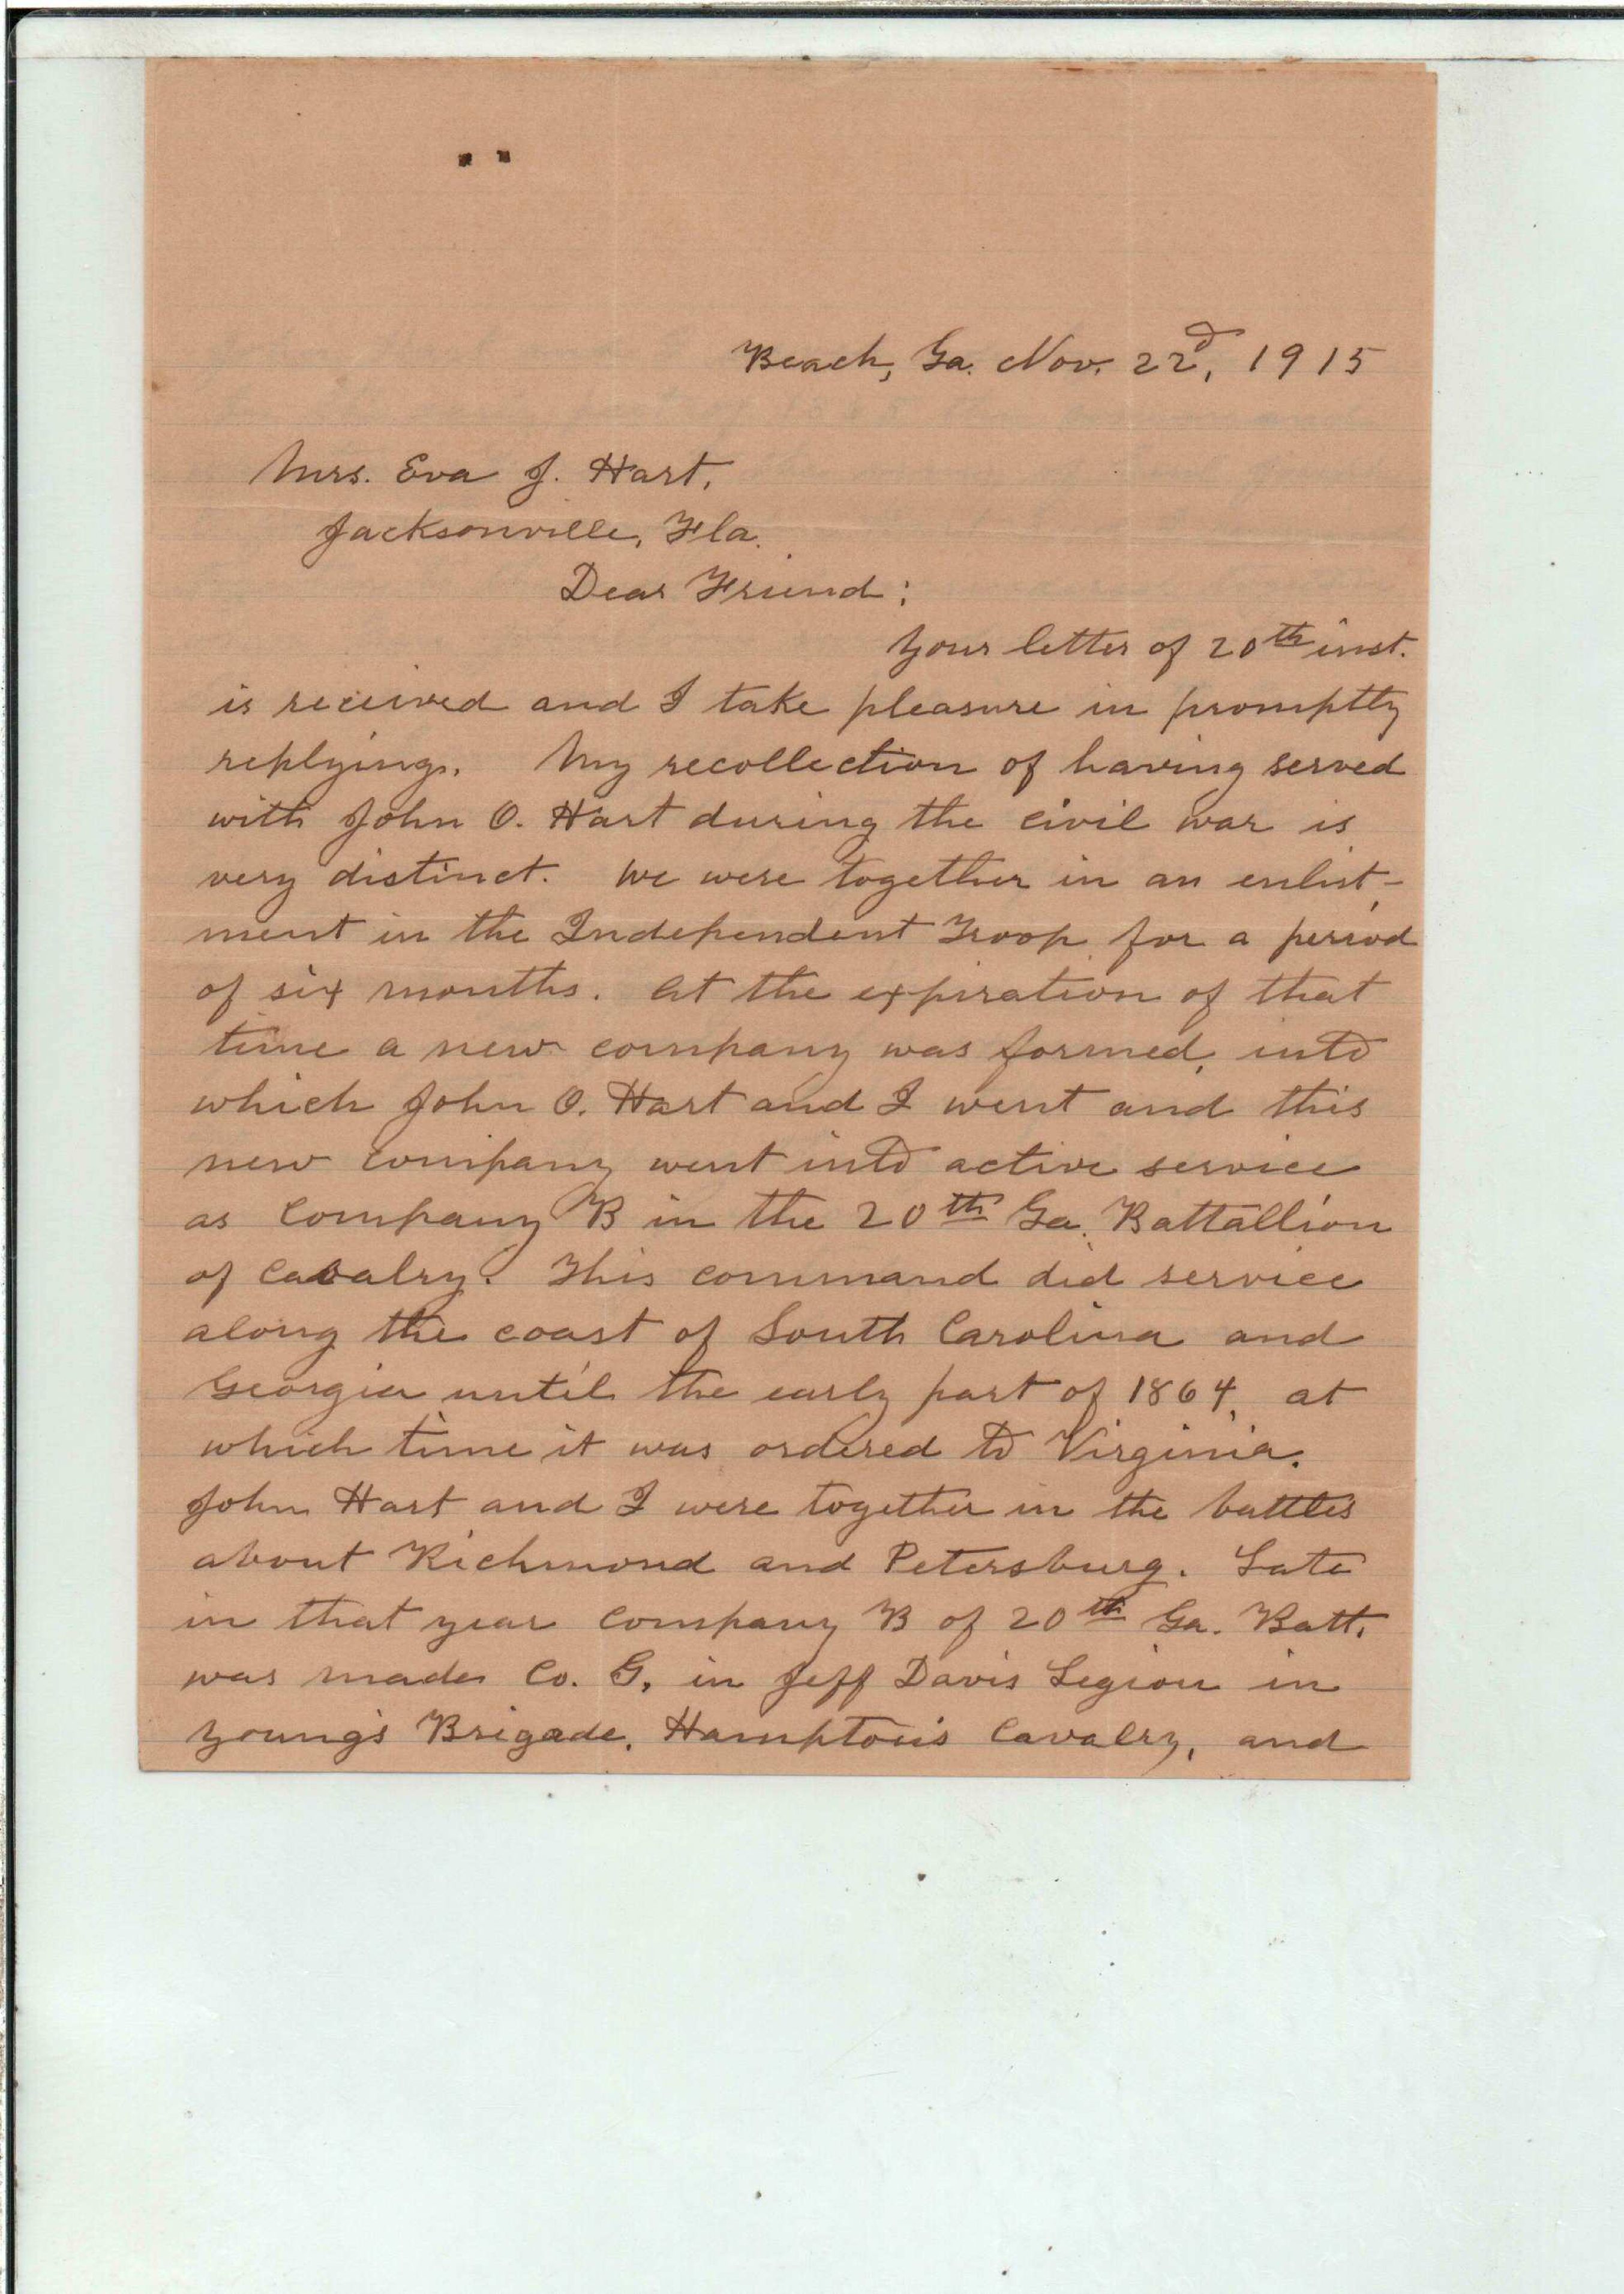 Beach, Ga. Nov. 22d, 1915
Mrs. Eva J. Hart,
Jacksonville, Fla.
Dear Friend:
Your letter of 20th inst.
is received and I take pleasure in promptly
replying. My recollection of having served
with John O. Hart during the civil war is
very distinct. We were together in an enlist-
ment in the Independent Troop for a period
of six months. At the expiration of that
time a new company was formed, into
which John O. Hart and I went and this
new company went into active service
as Company B in the 20th Ga. Battallion
of Cavalry. This command did service
along the coast of South Carolina and
Georgia until the early part of 1864, at
which time it was ordered to Virginia.
John Hart and I were together in the battles
about Richmond and Petersburg. Late
in that year Company B of 20th Ga. Batt.
was made Co. G, in Jeff Davis Legion in
Young's Brigade, Hampton's Cavalry, and